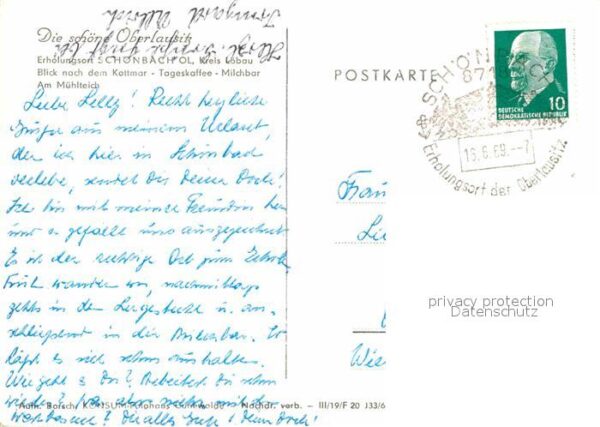 Irmgard Ullrich
Die schöne Oberlausitz
Erholungsort SCHÖNBACH OL, Kreis Löbau
Blick nach dem Kottmar - Tageskaffee - Milchbar
Am Mühlteich
Liebe Lelly! Recht herzliche
Grüße aus meinem Urlaub,
den ich hier in Schönbach
verlebe, sendet Dir Deine Dorle!
Ich bin mit meiner Freundin hier
und es gefällt uns ausgezeichnet.
Es ist der richtige Ort zum Erholen.
Früh wandern wir, nachmittags
gehts in den Liegestuhl u. an-
schließend in die Milchbar. So
läßt es sich schon aushalten.
Wie geht es Dir? Arbeitest Du schon
wieder? aber nichts mit der
Dir alles Gute! Deine Dorle!
Auth. Borsch, KONSUM Nachdr. verb. - III/19/F 20 J33/6
POSTKARTE
SCHÖNBACH
8718
Erholungsort der Oberlausitz
16.6.69.--7
DEUTSCHE
DEMOKRATISCHE REPUBLIK
10
Frau
Wies
privacy protection
Datenschutz